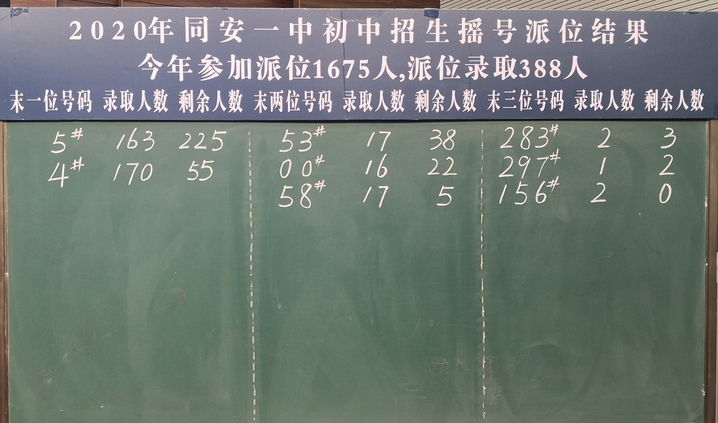 2020年同安一中初中招生摇号派位结果
今年参加派位1675人,派位录取388人
末一位号码 录取人数 剩余人数 末两位号码 录取人数 剩余人数 末三位号码 录取人数 剩余人数
5# 163 225 53# 17 38 283# 2 3
4# 170 55 00# 16 22 297# 1 2
58# 17 5 156# 2 0